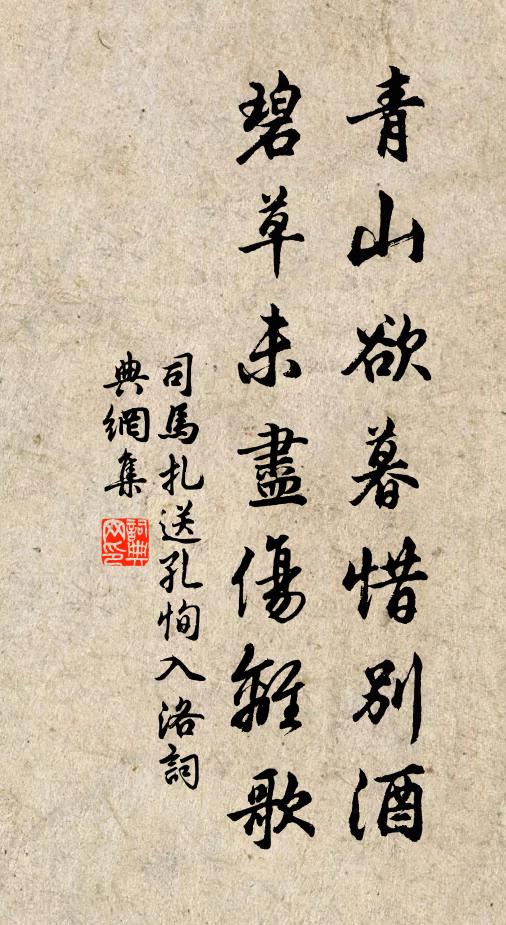 青山欲暮惜別酒
碧草未盡傷離歌
司馬扎送孔恂入洛詞
典網集
詞典网印